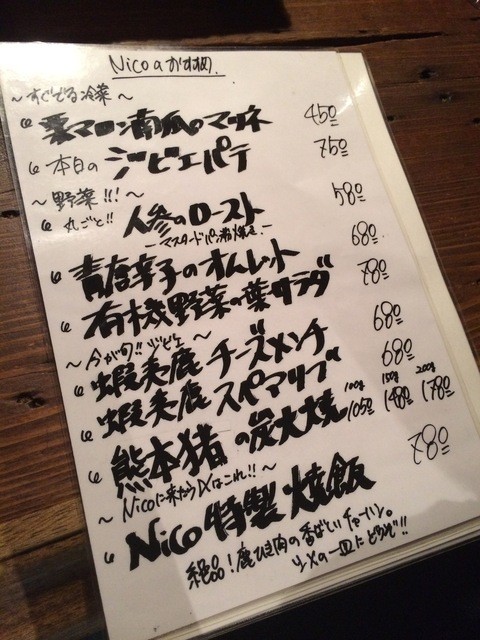 Nicoのおすすめ
～すぐでる冷菜～
栗マロン南瓜のマリネ 450
本日の ジビエパテ 750
～野菜!!!～
丸ごと!! 人参のロースト 580
－マスタードパン粉焼き－
青唐辛子のオムレット 680
有機野菜の葉サラダ 780
～今が旬!! ジビエ～
蝦夷鹿 チーズメンチ 680
蝦夷鹿 スペアリブ 680
熊本猪の炭火焼 100g 1050 150g 1480 200g 1780
～Nicoに来たら〆はこれ!!～
Nico特製 焼飯 780
絶品!鹿ひき肉の香ばしいチャーハン。
〆の一皿にどうぞ!!